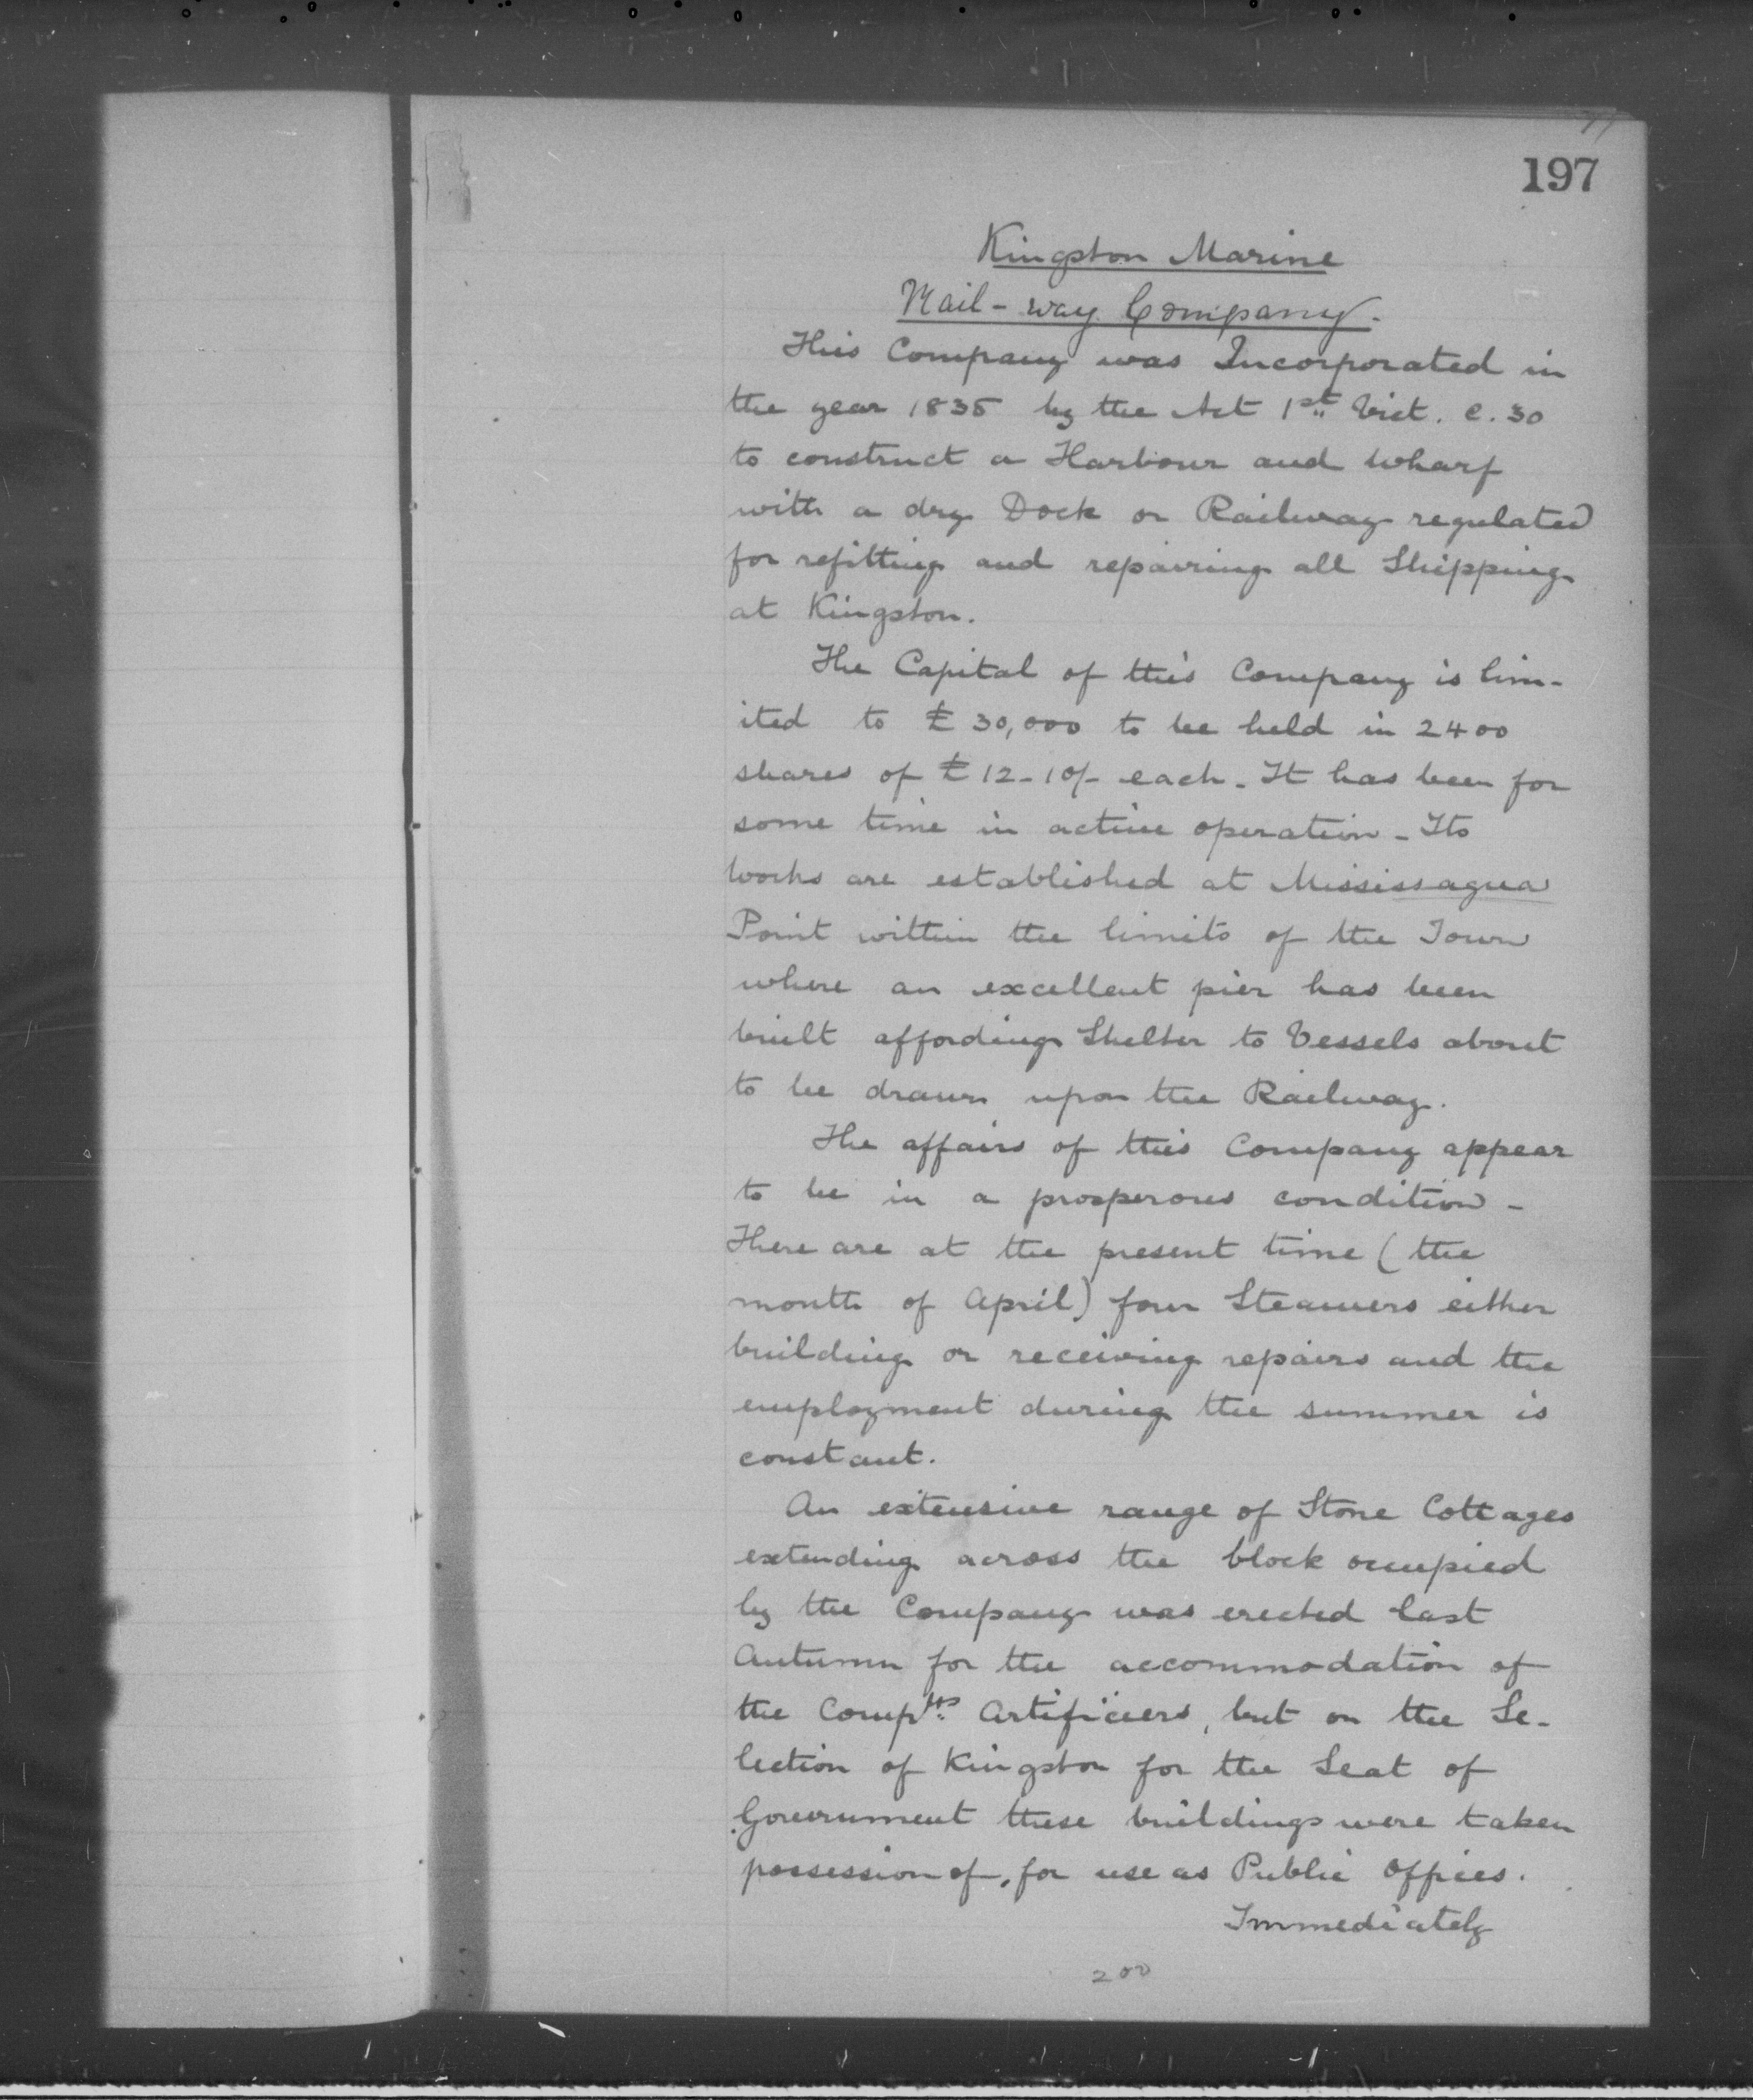 197
Kingston Marine
Rail-way Company.
This Company was Incorporated in
the year 1835 by the Act 1st Vict. c. 30
to construct a Harbour and Wharf
with a dry Dock or Railway regulated
for refitting and repairing all Shipping
at Kingston.
The Capital of this Company is lim-
ited to £ 30,000 to be held in 2400
shares of £ 12-10/- each - It has been for
some time in active operation - Its
works are established at Mississagua
Point within the limits of the Town
where an excellent pier has been
built affording Shelter to Vessels about
to be drawn upon the Railway.
The affairs of this Company appear
to be in a prosperous condition -
There are at the present time (the
month of April) four Steamers either
building or receiving repairs and the
employment during the summer is
constant.
An extensive range of Stone Cottages
extending across the block occupied
by the Company was erected last
Autumn for the accommodation of
the Comp'ys Artificiers, but on the Se-
lection of Kingston for the Seat of
Government these buildings were taken
possession of, for use as Public Offices.
Immediately
200